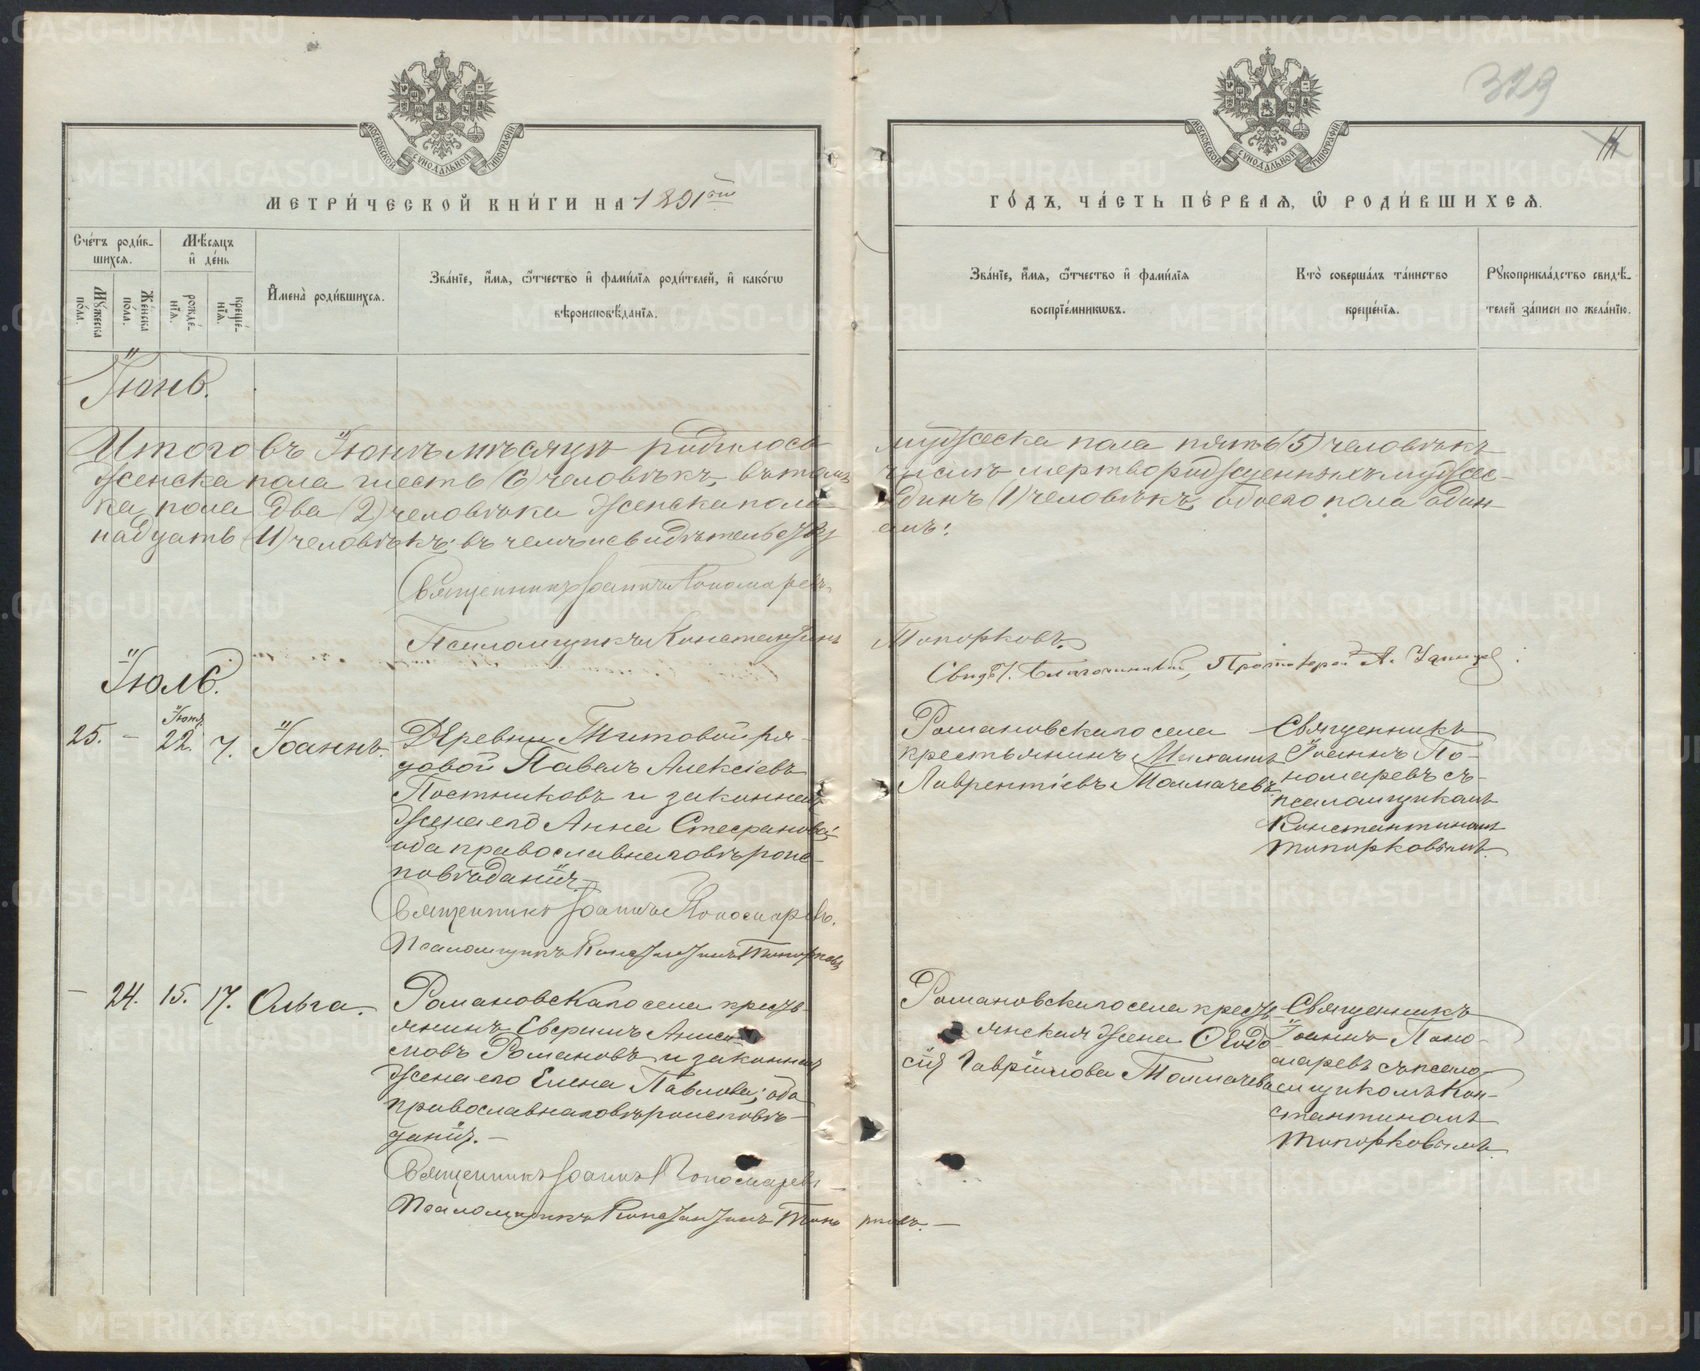 329
МОСКОВСКОЙ СѴНОДАЛЬНОЙ ТИПОГРАФІИ
МОСКОВСКОЙ СѴНОДАЛЬНОЙ ТИПОГРАФІИ
МЕТРИ́ЧЕСКОЙ КНИ́ГИ НА 1891ый
ГО́ДЪ, ЧА́СТЬ ПЕ́РВАЯ, Ѡ РОДИ́ВШИХСЯ.
Сче́тъ роди́в-
шихся.
Мꙋ́жеска
по́ла.
Же́нска
по́ла.
Мѣ́сяцъ
и҆ де́нь
рожде́-
нїя.
креще́-
нїя.
И҆мена̀ роди́вшихся.
Зва́нїе, и҆́мя, ѻ҆́тчество и҆ фами́лїя роди́телей, и҆ како́гѡ
вѣроисповѣ́данїя.
Зва́нїе, и҆́мя, ѻ҆́тчество и҆ фами́лїя
воспрїе́мникѡвъ.
Кто̀ соверша́лъ та́инство
креще́нїя.
Рꙋкоприкла́дство свидѣ́-
телей за́писи по жела́нїю.
Іюнь.
Итого въ Іюнѣ мѣсяцѣ родилось мужеска пола пять (5) человѣкъ
женска пола шесть (6) человѣкъ, въ томъ числѣ мертворожденныхъ мужес-
ка пола два (2) человѣка женска пола одинъ (1) человѣкъ, обоего пола один-
надцать (11) человѣкъ; въ чемъ и свидѣтельствуемъ:
Священникъ Іоаннъ Пономаревъ
Псаломщикъ Константинъ Топорковъ.
Свид. Благочинный, Протоіерей А.
Іюль.
25. – Іюня 22. 7. Іоаннъ.
Деревни Титовой ря-
довой Павелъ Алексіевъ
Постниковъ и законная
жена его Анна Стефанова,
оба православнаго вѣроис-
повѣданія.
Священникъ Іоаннъ Пономаревъ.
Псаломщикъ Константинъ Топорковъ
Романовскаго села
крестьянинъ Михаилъ
Лаврентіевъ Толмачевъ.
Священникъ
Іоаннъ По-
номаревъ съ
псаломщикомъ
Константиномъ
Топорковымъ.
– 24. 15. 17. Ольга.
Романовскаго села кресть-
янинъ Евфимъ Аниси-
мовъ Романовъ и законная
жена его Елена Павлова; оба
православнаго вѣроисповѣ-
данія. –
Священникъ Іоаннъ Пономаревъ
Псаломщикъ Константинъ Топорковъ. –
Романовскаго села кресть-
янская жена Ѳеодо-
сія Гавріилова Толмачева
Священникъ
Іоаннъ Поно-
маревъ съ псало-
мщикомъ Кон-
стантиномъ
Топорковымъ.
METRIKI.GASO-URAL.RU